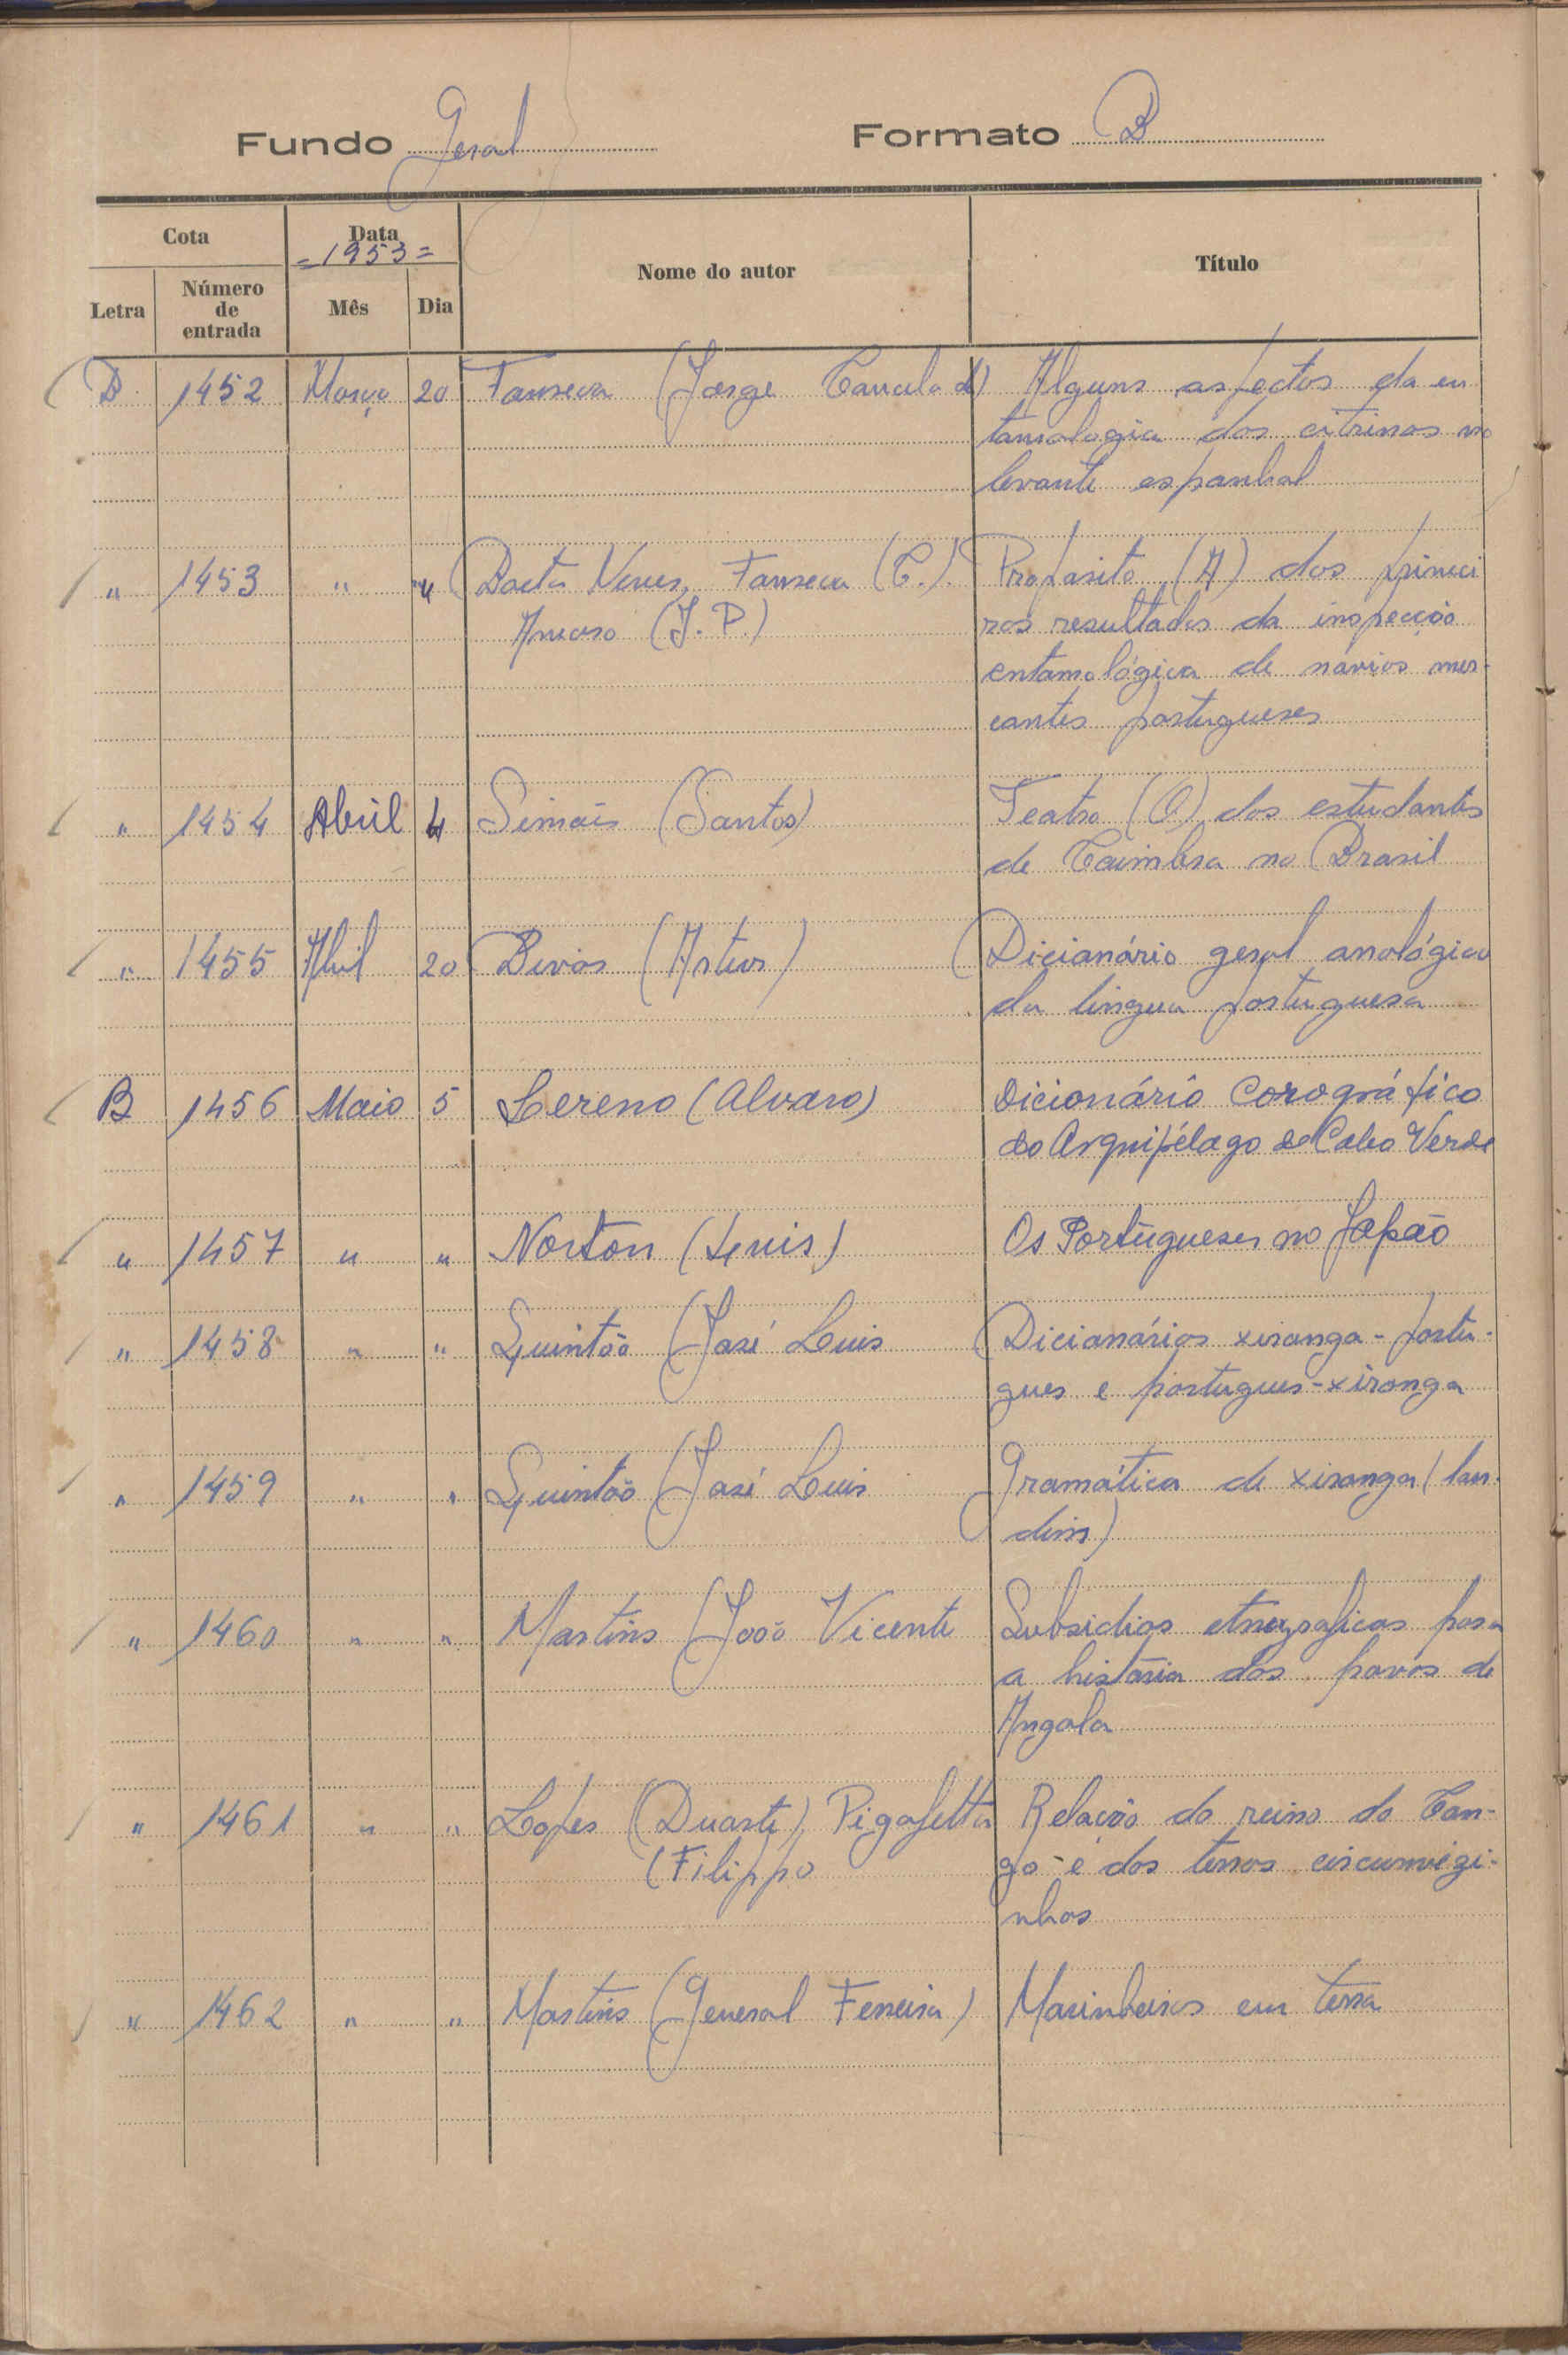 Fundo Geral Formato B
Cota Data Nome do autor Título
= 1953 =
Letra Número de entrada Mês Dia
B 1452 Março 20 Fonseca (Jorge Cancela d) Alguns aspectos da en
tomologia dos citrinos no
levante espanhol
" 1453 " " Baeta Neves, Fonseca (C.). Proposito (A) dos primei
Amaro (J. P.) ros resultados da inspecção
entomológica de návios mer-
cantes portugueses
" 1454 Abril 4 Simões (Santos) Teatro (O) dos estudantes
de Coimbra no Brasil
" 1455 Abril 20 Bivar (Artur) Dicionário geral analógico
da lingua portuguesa
B 1456 Maio 5 Lereno (Alvaro) Dicionário Corográfico
do Arquipélago de Cabo Verde
" 1457 " " Norton (Luis) Os Portugueses no Japão
" 1458 " " Quintão (José Luis Dicionários xironga-portu-
gues e portugues-xironga
" 1459 " " Quintão (José Luis Gramática de xironga (lan-
dim)
" 1460 " " Martins (João Vicente Subsidios etnograficos para
a história dos povos de
Angola
" 1461 " " Lopes (Duarte), Pigafetta Relação do reino do Con-
(Filippo go e dos terras circumvezi-
nhas
" 1462 " " Martins (General Ferreira) Marinheiros em terra